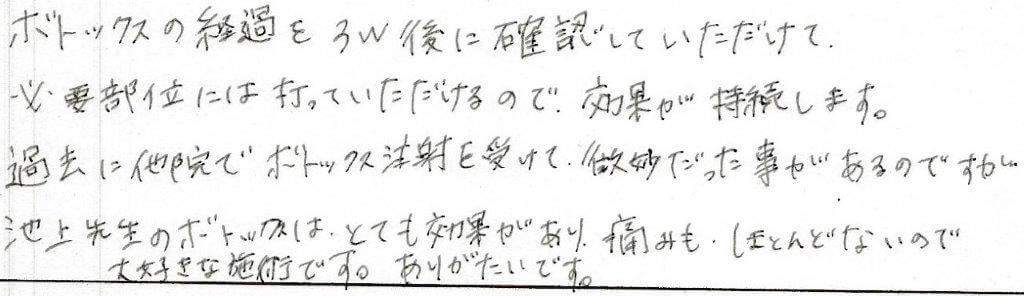 ボトックスの経過を3W後に確認していただけて、
必要部位には打っていただけるので、効果が持続します。
過去に他院でボトックス注射を受けて、微妙だった事があるのですが
池上先生のボトックスは、とても効果があり、痛みも、ほとんどないので
大好きな施術です。ありがたいです。